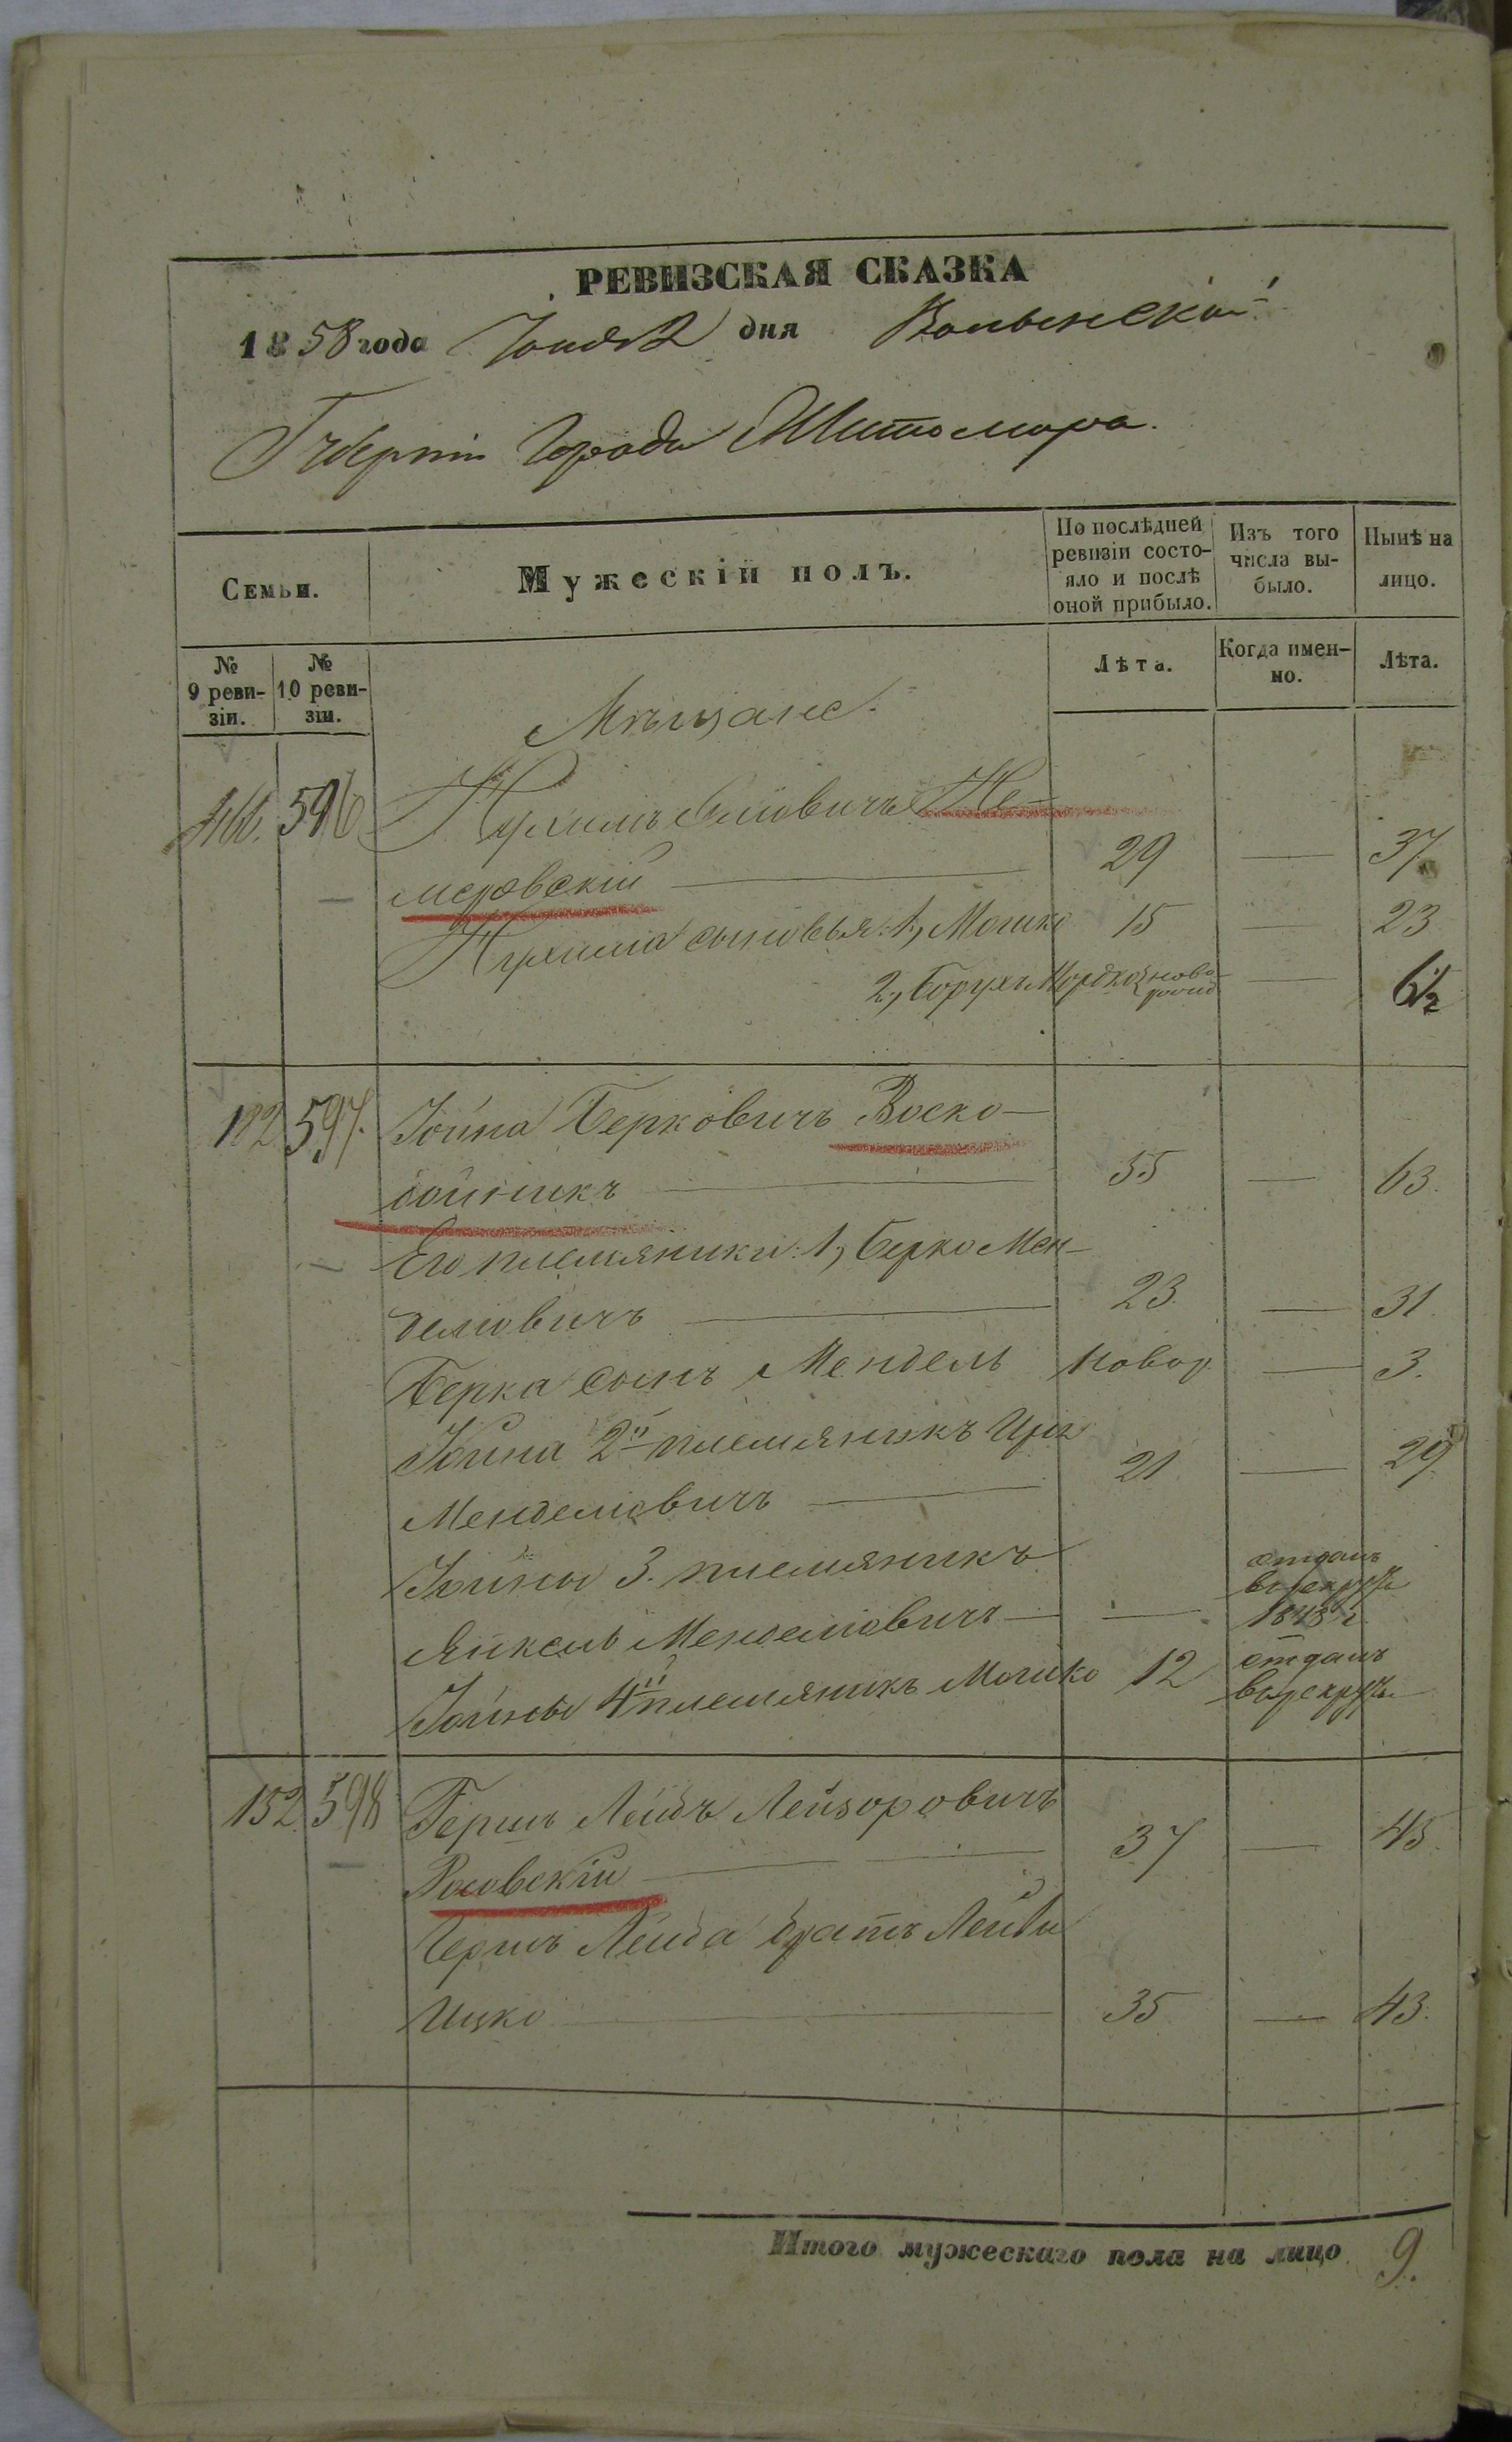 РЕВИЗСКАЯ СКАЗКА
1858 года Іюня 2 дня Волынской
Губерніи Города Житомира.
Семьи.
Мужескій полъ.
По послѣдней ревизіи состо-
яло и послѣ
оной прибыло.
Изъ того
числа вы-
было.
Нынѣ на
лицо.
№
9 реви-
зіи.
№
10 реви-
зіи.
Лѣта.
Когда имен-
но.
Лѣта.
Мѣщане.
466. 596 Нухимъ Не-
меровскій 29 — 37
Нухима сыновья: 1, Мошко 15 — 23
2, Борухъ Мордко новорожд — 6½
182 597. Іойна Берковичъ Воско-
бойникъ 55 — 63.
Его племяники: 1, Берко Мен-
делiовичъ 23 — 31.
Берка сынъ Мендель новор. — 3.
Іойны 2й племяникъ
Менделіовичъ 21 — 29
Іойны 3. племяникъ
Янкель Менделіовичъ — отданъ
в рекруты
1848 г
Іойны 4й племяникъ Мошко 12 отданъ
в рекруты
152. 598 Гершъ Лейбъ Лейзоровичъ
Росовскій 37 — 45.
Гершъ Лейба братъ Лейба
Ицко 35 — 43.
Итого мужескаго пола на лицо 9.